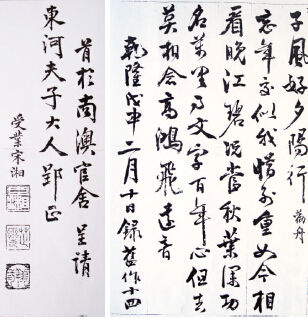 子風好夕陽行
忘年交似我惜別重如今相
看晚江碧況當秋葉深功
名萬里文字百年心但去
莫相高鴻飛遠音
乾隆戊申二月十日錄舊作十四
首於南澳官舍呈請
東河夫子大人郢正
受業宋湘